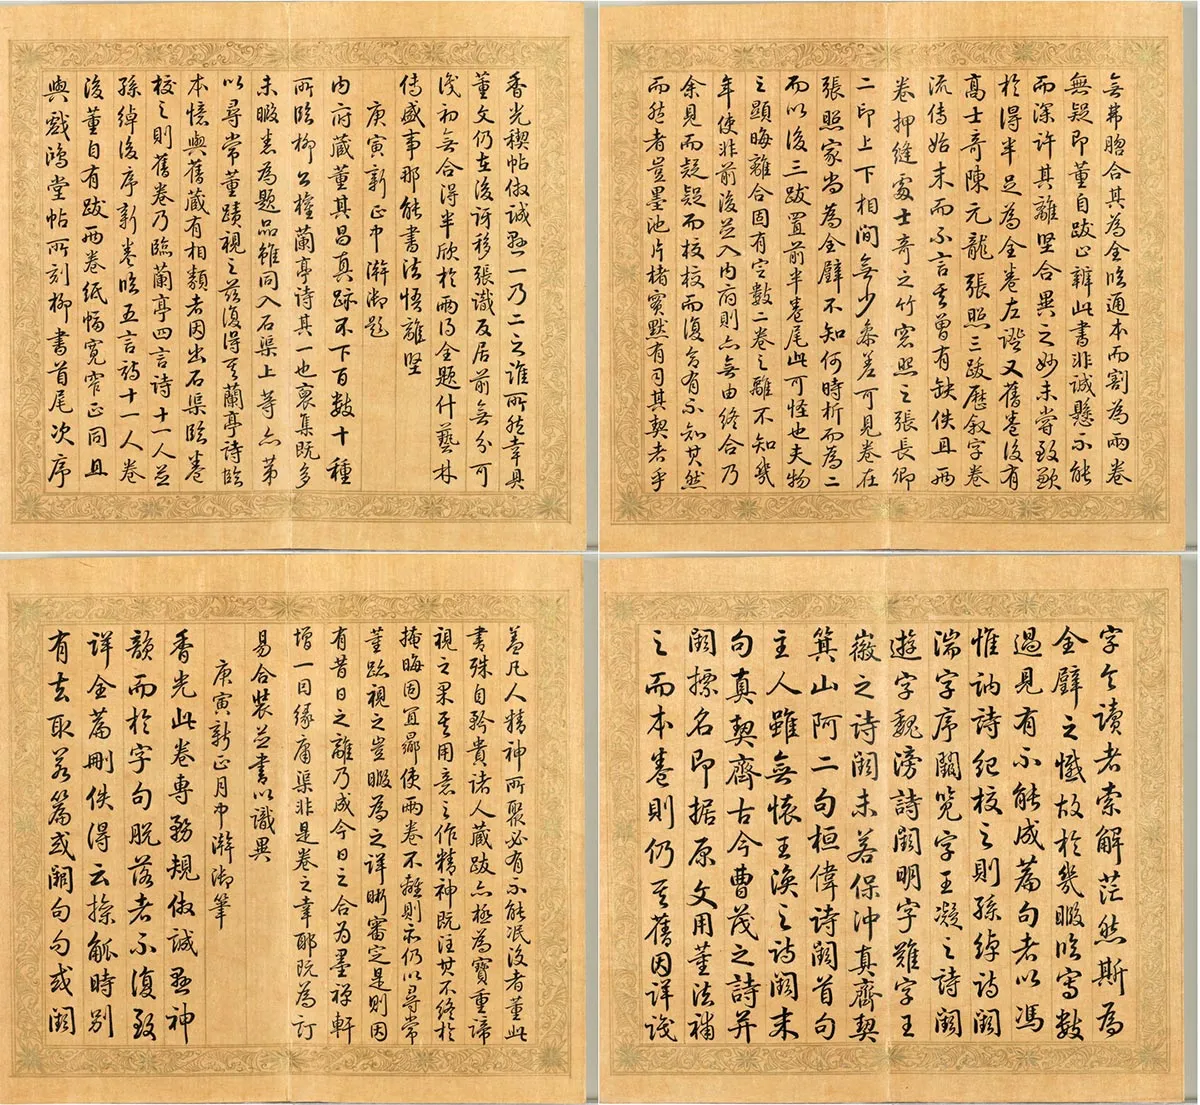 香光稧帖倣誠懸一乃二之誰所然幸具
董文仍在後訝移張識反居前無分可
識初無合得半欣於兩得全題什藝林
傳盛事那能書法悟離堅
庚寅新正中澣御題
内府藏董其昌真跡不下百數十種
所臨柳公權蘭亭詩其一也裒集既多
未暇悉為題品雖同入石渠上等亦第
以尋常董蹟視之茲復得其蘭亭詩臨
本憶與舊藏有相類者因出石渠臨卷
校之則舊卷乃臨蘭亭四言詩十一人並
孫綽後序新卷臨五言詩十一人卷
後董自有跋兩卷紙幅寬窄正同且
與戲鴻堂帖所刻柳書首尾次序
無弗脗合其為全臨通本而割為兩卷
無疑即董自跋亦辨此書非誠懸不能
而深許其離堅合異之妙未嘗致歉
於得半足為全卷左證又舊卷後有
高士奇陳元龍張照三跋歷叙字卷
流傳始末而不言其曾有缺佚且兩
卷押縫處士奇之竹窗照之張長卿
二印上下相間無少參差可見卷在
張照家尚為全璧不知何時析而為二
而以後三跋置前半卷尾此可怪也夫物
之顯晦離合固有定數二卷之離不知幾
年使非前後並入内府則亦無由終合乃
余見而疑疑而校校而復合有不知其然
而然者豈墨池片楮冥默有司其契者乎
蓋凡人精神所聚必有不能泯沒者董此
書殊自矜貴諸人藏跋亦極為寶重諦
視之果其用意之作精神既注其不終於
掩晦固宜嚮使兩卷不離則亦仍以尋常
董跡視之豈暇為之詳晰審定是則因
有昔日之離乃成今日之合為墨禪軒
增一因緣庸渠非是卷之幸耶既為訂
易合裝並書以識異
庚寅新正月中澣御筆
香光此卷專務規倣誠懸神
韻而於字句脫落者不復致
詳全篇刪佚得云操觚時別
有去取若篇或闕句句或闕
字令讀者索解茫然斯為
全璧之憾故於幾暇臨寫數
過見有不能成篇句者以馮
惟訥詩紀校之則孫綽詩闕
湍字序闕覽字王凝之詩闕
遊字魏滂詩闕明字難字王
徽之詩闕未若保沖真齊契
箕山阿二句桓偉詩闕首句
主人雖無懷王渙之詩闕末
句真契齊古今曹茂之詩并
闕標名即据原文用董法補
之而本卷則仍其舊因詳識